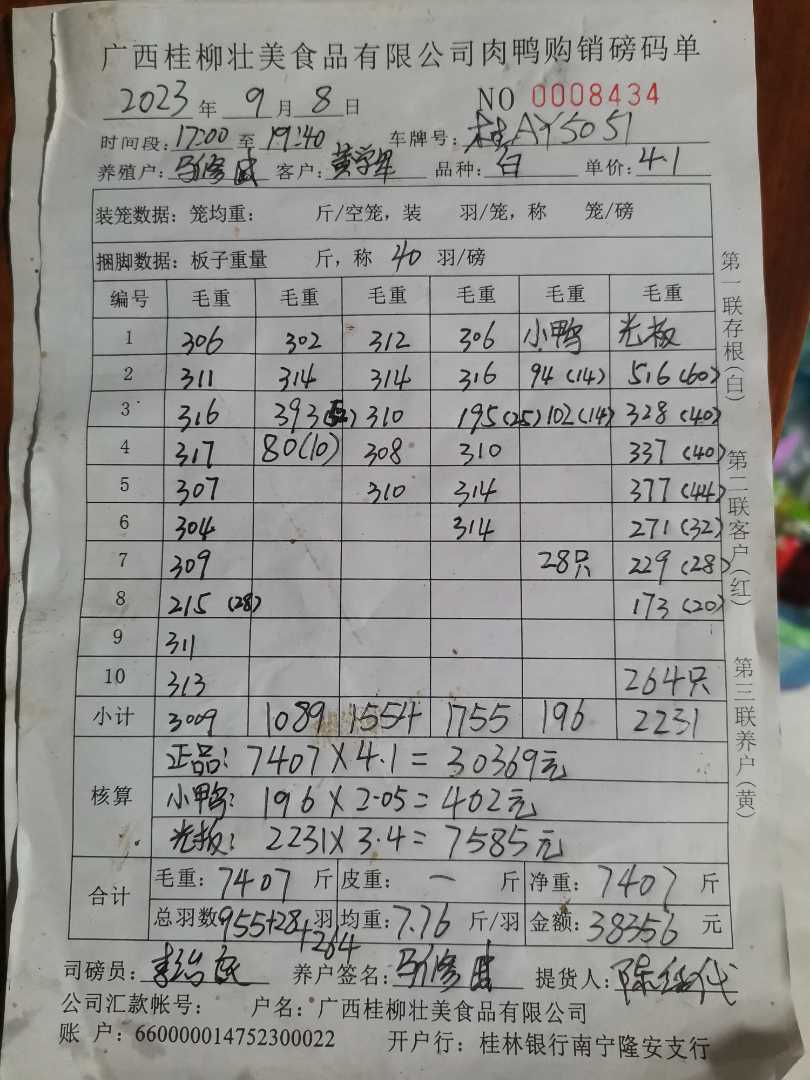 广西桂柳壮美食品有限公司肉鸭购销磅码单
2023年 9月 8日 NO 0008434
时间段: 17:00 至 19:40 车牌号: 桂AY5051
养殖户: 客户: 黄学军 品种: 白 单价: 4.1
装笼数据: 笼均重: 斤/空笼, 装 羽/笼, 称 笼/磅
捆脚数据: 板子重量 斤, 称 40 羽/磅
编号 毛重 毛重 毛重 毛重 毛重 毛重
1 306 302 312 306 小鸭 光板
2 311 314 314 316 94(14) 516(60)
3 316 393(52) 310 195(25) 102(14) 328(40)
4 317 80(10) 308 310 337(40)
5 307 310 314 377(44)
6 304 314 271(32)
7 309 28只 229(28)
8 215(28) 173(20)
9 311
10 313 264只
小计 3009 1089 1554 1755 196 2231
核算
正品: 7407×4.1=30369元
小鸭: 196×2.05=402元
光板: 2231×3.4=7585元
合计
毛重: 7407 斤 皮重: 一 斤 净重: 7407 斤
总羽数 955+28+264 羽 均重: 7.76 斤/羽 金额: 38356 元
司磅员: 养户签名: 提货人:
公司汇款帐号: 户名: 广西桂柳壮美食品有限公司
账 户: 660000014752300022 开户行: 桂林银行南宁隆安支行
第一联存根(白)
第二联客户(红)
第三联养户(黄)